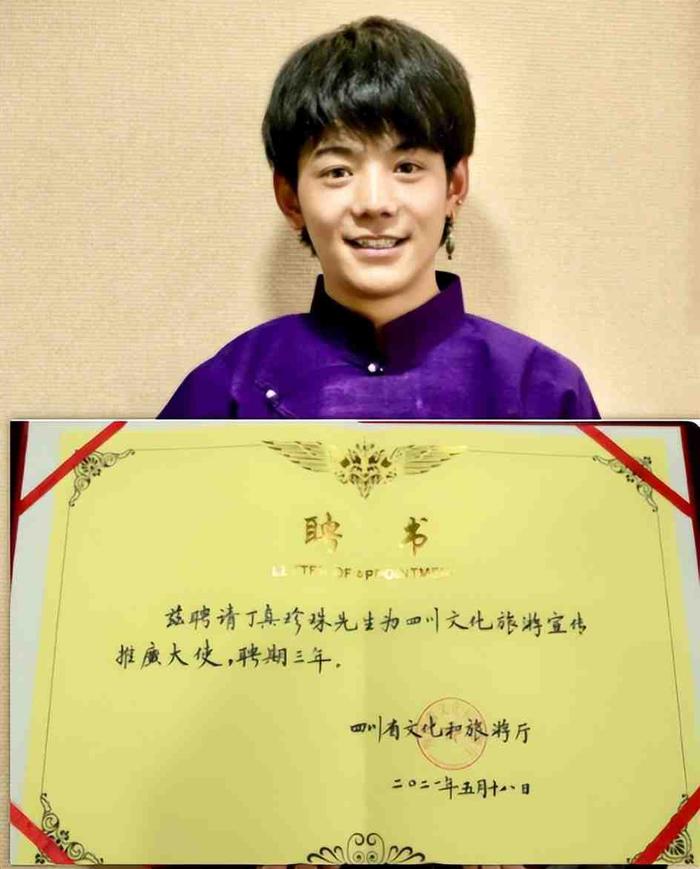 聘 书
LETTER OF APPOINTMENT
兹聘请丁真珍珠先生为四川文化旅游宣传
推廣大使，聘期三年。
四川省文化和旅游厅
二〇二一年五月十八日